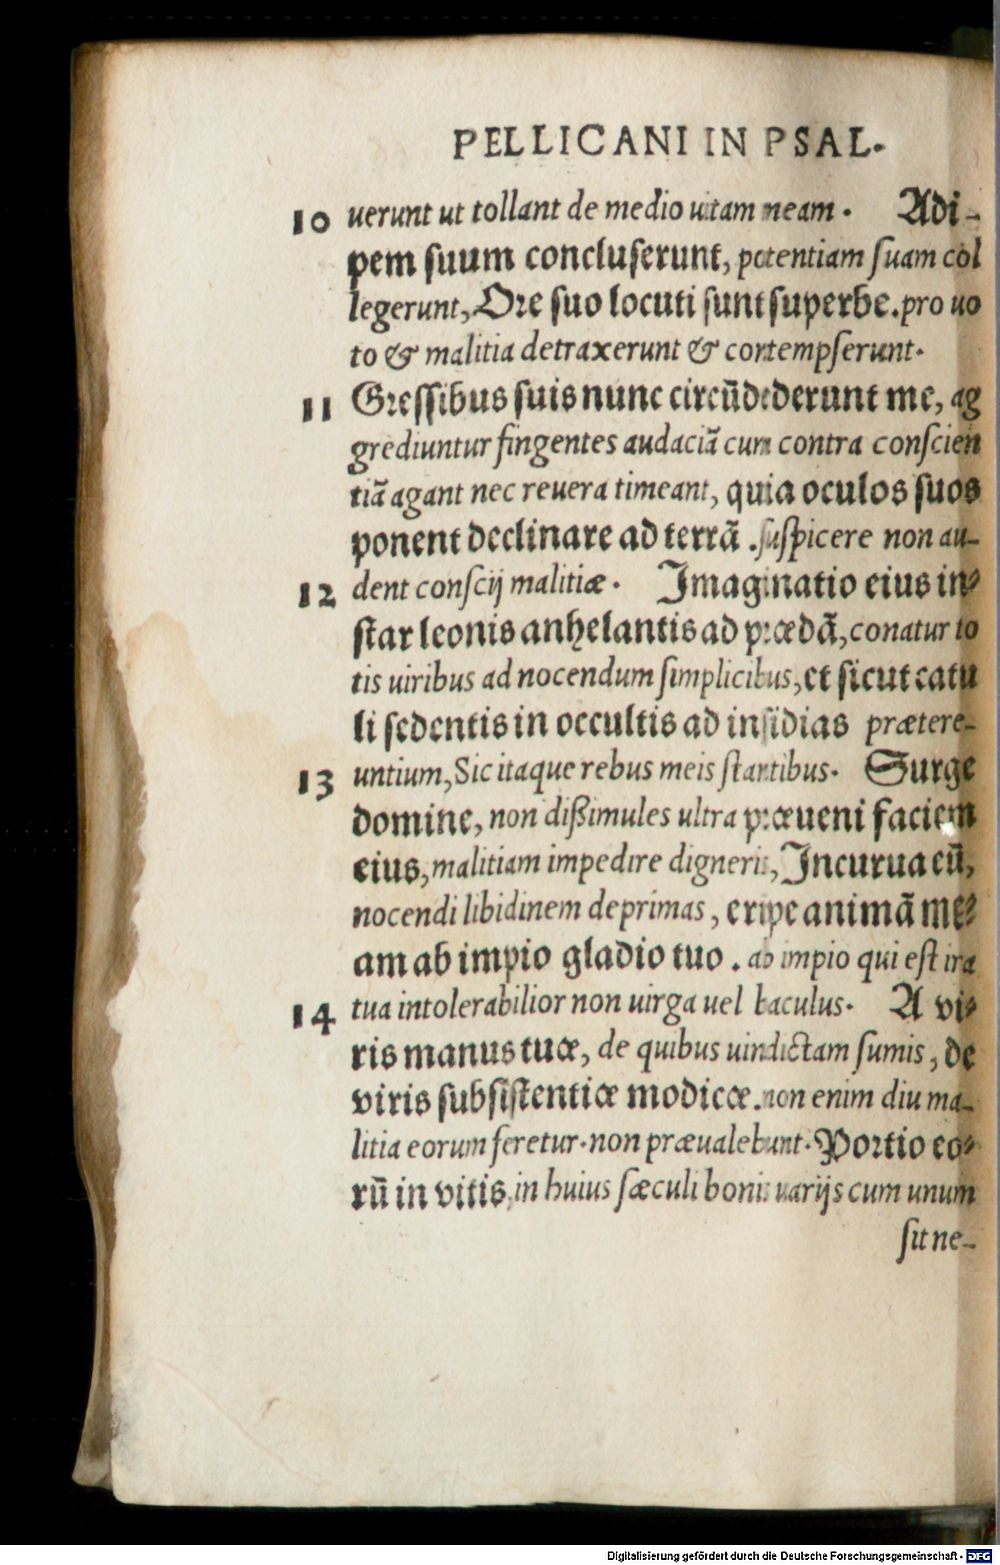 PELLICANI IN PSAL.
10 uerunt ut tollant de medio uitam meam . Adi-
pem suum concluserunt, potentiam suam col
legerunt, Ore suo locuti sunt superbe. pro uo
to & malitia detraxerunt & contempserunt.
11 Gressibus suis nunc circūdederunt me, ag
grediuntur fingentes audaciā cum contra conscien
tiā agant nec reuera timeant, quia oculos suos
ponent declinare ad terrā . suspicere non au-
12 dent conscij malitiæ . Imaginatio eius in-
star leonis anhelantis ad prædā, conatur to
tis uiribus ad nocendum simplicibus, et sicut catu
li sedentis in occultis ad insidias prætere-
13 untium, Sic itaque rebus meis stantibus. Surge
domine, non dißimules ultra præueni faciem
eius, malitiam impedire digneris, Incurua eū,
nocendi libidinem deprimas, eripe animā me-
am ab impio gladio tuo . ab impio qui est ira
14 tua intolerabilior non uirga uel baculus. A vi-
ris manus tuæ, de quibus uindictam sumis, de
viris subsistentiæ modicæ. non enim diu ma-
litia eorum feretur. non præualebunt. Portio eo-
rū in vitis, in huius sæculi bonis uarijs cum unum
sit ne-
Digitalisierung gefördert durch die Deutsche Forschungsgemeinschaft - DFG